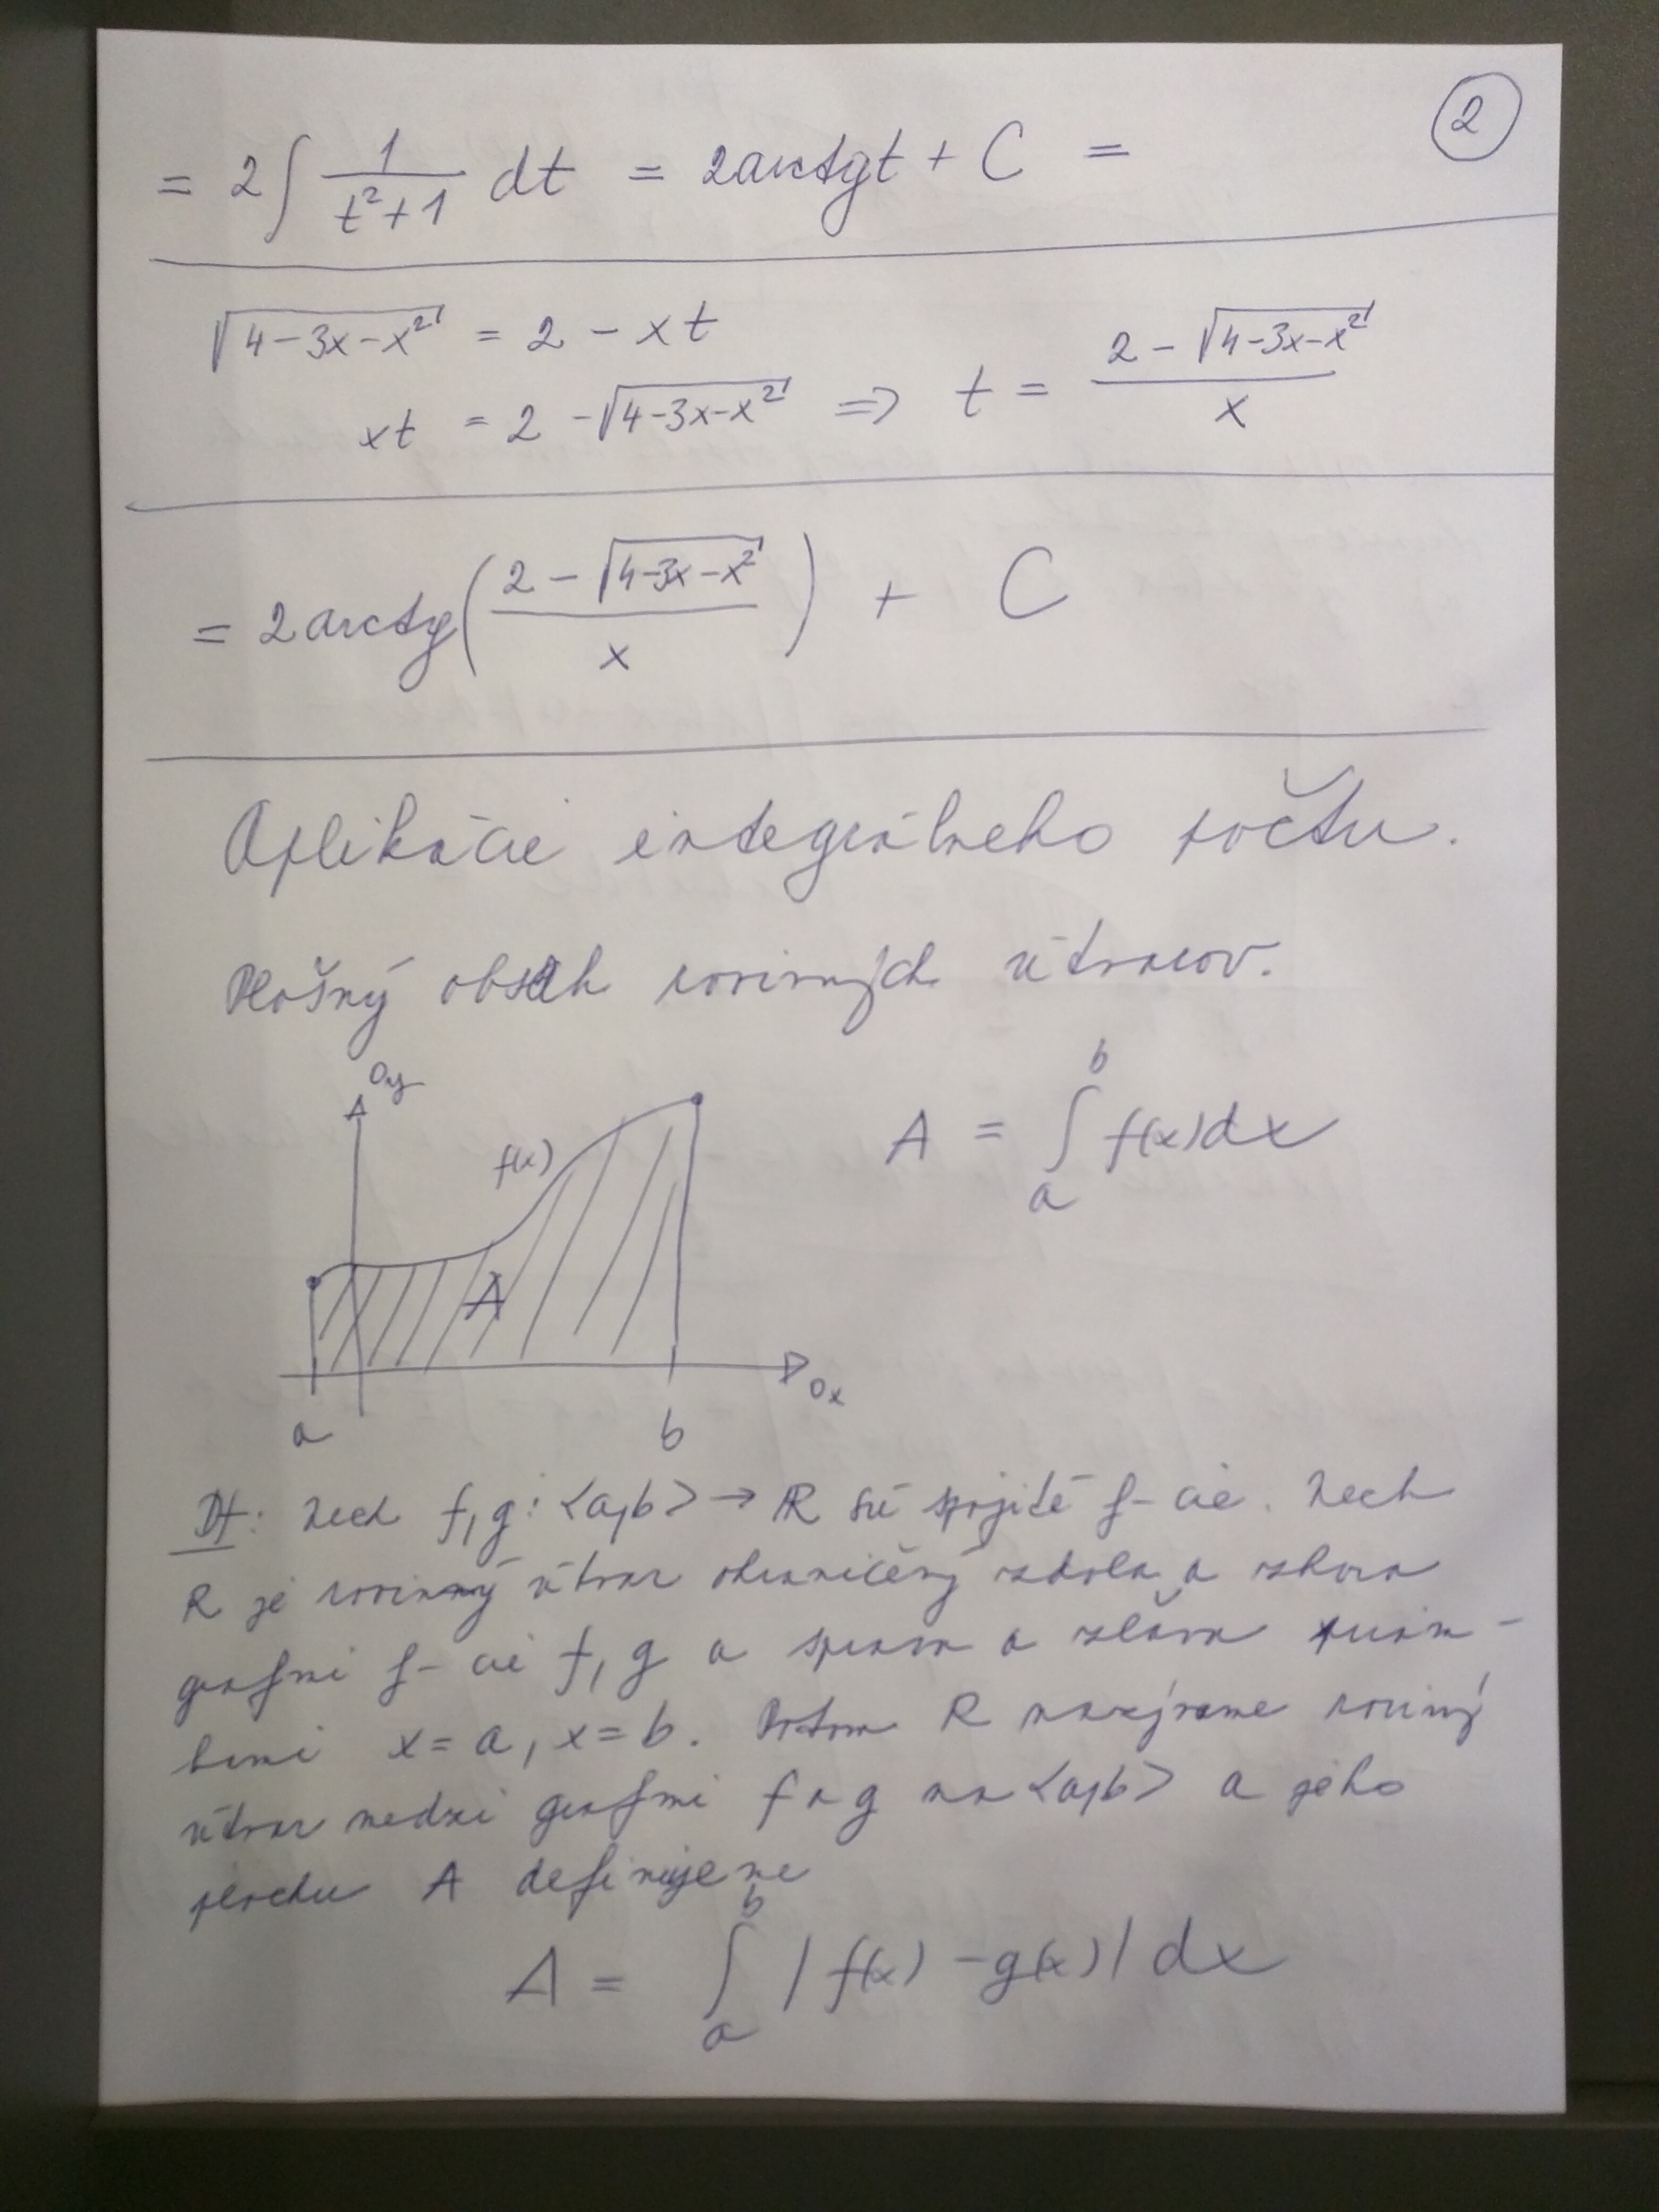 2
= 2 ∫ 1/(t²+1) dt = 2arctgt + C =
√(4-3x-x²) = 2 - xt
xt = 2 - √(4-3x-x²) ⇒ t = (2 - √(4-3x-x²))/x
= 2arctg((2 - √(4-3x-x²))/x) + C
Aplikácie integrálneho počtu.
Plošný obsah rovinných útvarov.
Oy
f(x)
A = ∫_a^b f(x)dx
A
Ox
a b
Df: Nech f, g: <a,b> → R sú spojité f-cie. Nech
R je rovinný útvar ohraničený zdola a zhora
grafmi f-cií f, g a sprava a zľava priam-
kami x=a, x=b. Potom R nazývame rovinný
útvar medzi grafmi f a g na <a,b> a jeho
plochu A definujeme
A = ∫_a^b |f(x) - g(x)| dx